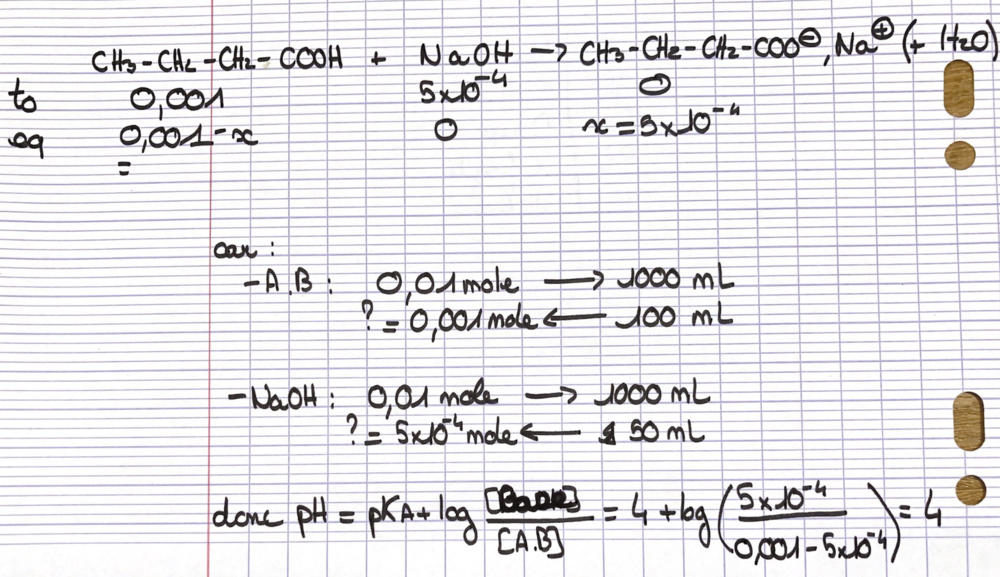 CH3-CH2-CH2-COOH + NaOH → CH3-CH2-CH2-COO⊖, Na⊕ (+ H2O)
to 0,001 5x10⁻⁴ 0
eq 0,001-x 0 x = 5x10⁻⁴
=
car :
- A.B : 0,01 mole → 1000 mL
? = 0,001 mole ← 100 mL
- NaOH : 0,01 mole → 1000 mL
? = 5x10⁻⁴ mole ← 50 mL
donc pH = pKA + log [Base]/[A.B] = 4 + log (5x10⁻⁴/(0,001 - 5x10⁻⁴)) = 4